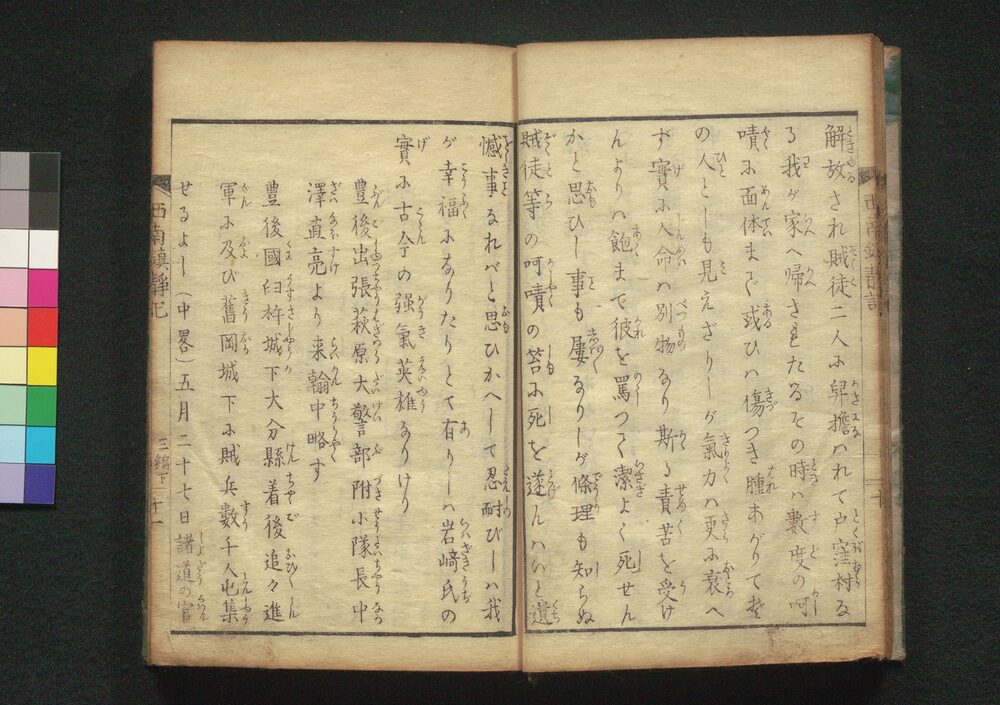 解放され賊徒二人に舁擔はれて戸窪村な
る我が家へ帰されたるその時ハ數度の呵
嘖に面体まで或ひハ傷つき腫あがりて
の人としも見えざりしが氣力ハ更に衰へ
ず實に人命ハ別物なり斯る責苦を受け
んよりハ飽まで彼を罵つて潔よく死せん
かと思ひし事も屡なりしが條理も知らぬ
賊徒等の呵嘖の笞に死を遂んハいと遺
憾事なれバと思ひかへして忍耐びしハ我
が幸福になりたりとて有りしハ岩﨑氏の
實に古今の强氣英雄なりけり
豊後出張萩原大警部附小隊長中
澤直亮より来翰中略す
豊後國臼杵城下大分縣着後追々進
軍に及び舊岡城下に賊兵數千人屯集
せるよし(中畧)五月二十七日諸道の官
西南鎮靜記
三編下
十一